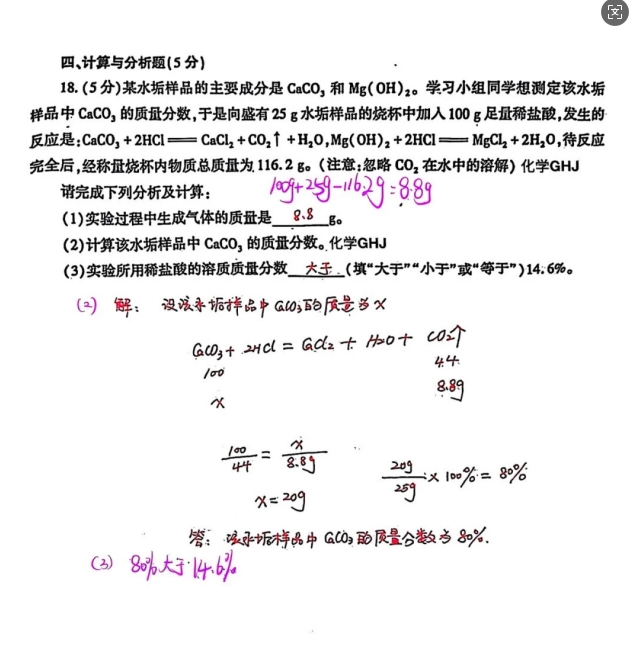 四、计算与分析题(5分)
18.(5分)某水垢样品的主要成分是 CaCO₃ 和 Mg(OH)₂。学习小组同学想测定该水垢
样品中 CaCO₃ 的质量分数,于是向盛有 25 g 水垢样品的烧杯中加入 100 g 足量稀盐酸,发生的
反应是:CaCO₃ + 2HCl === CaCl₂ + CO₂↑ + H₂O,Mg(OH)₂ + 2HCl === MgCl₂ + 2H₂O,待反应
完全后,经称量烧杯内物质总质量为 116.2 g。(注意:忽略 CO₂ 在水中的溶解) 化学GHJ
请完成下列分析及计算:
100g+25g-116.2g=8.8g
(1)实验过程中生成气体的质量是 8.8 g。
(2)计算该水垢样品中 CaCO₃ 的质量分数。化学GHJ
(3)实验所用稀盐酸的溶质质量分数 大于 (填“大于”“小于”或“等于”)14.6%。
(2) 解: 设该水垢样品中 CaCO₃的质量为 x
CaCO₃ + 2HCl = CaCl₂ + H₂O + CO₂↑
100 44
x 8.8g
100/44 = x/8.8g
20g/25g × 100% = 80%
x = 20g
答: 该水垢样品中 CaCO₃ 的质量分数为 80%.
(3) 80%大于14.6%